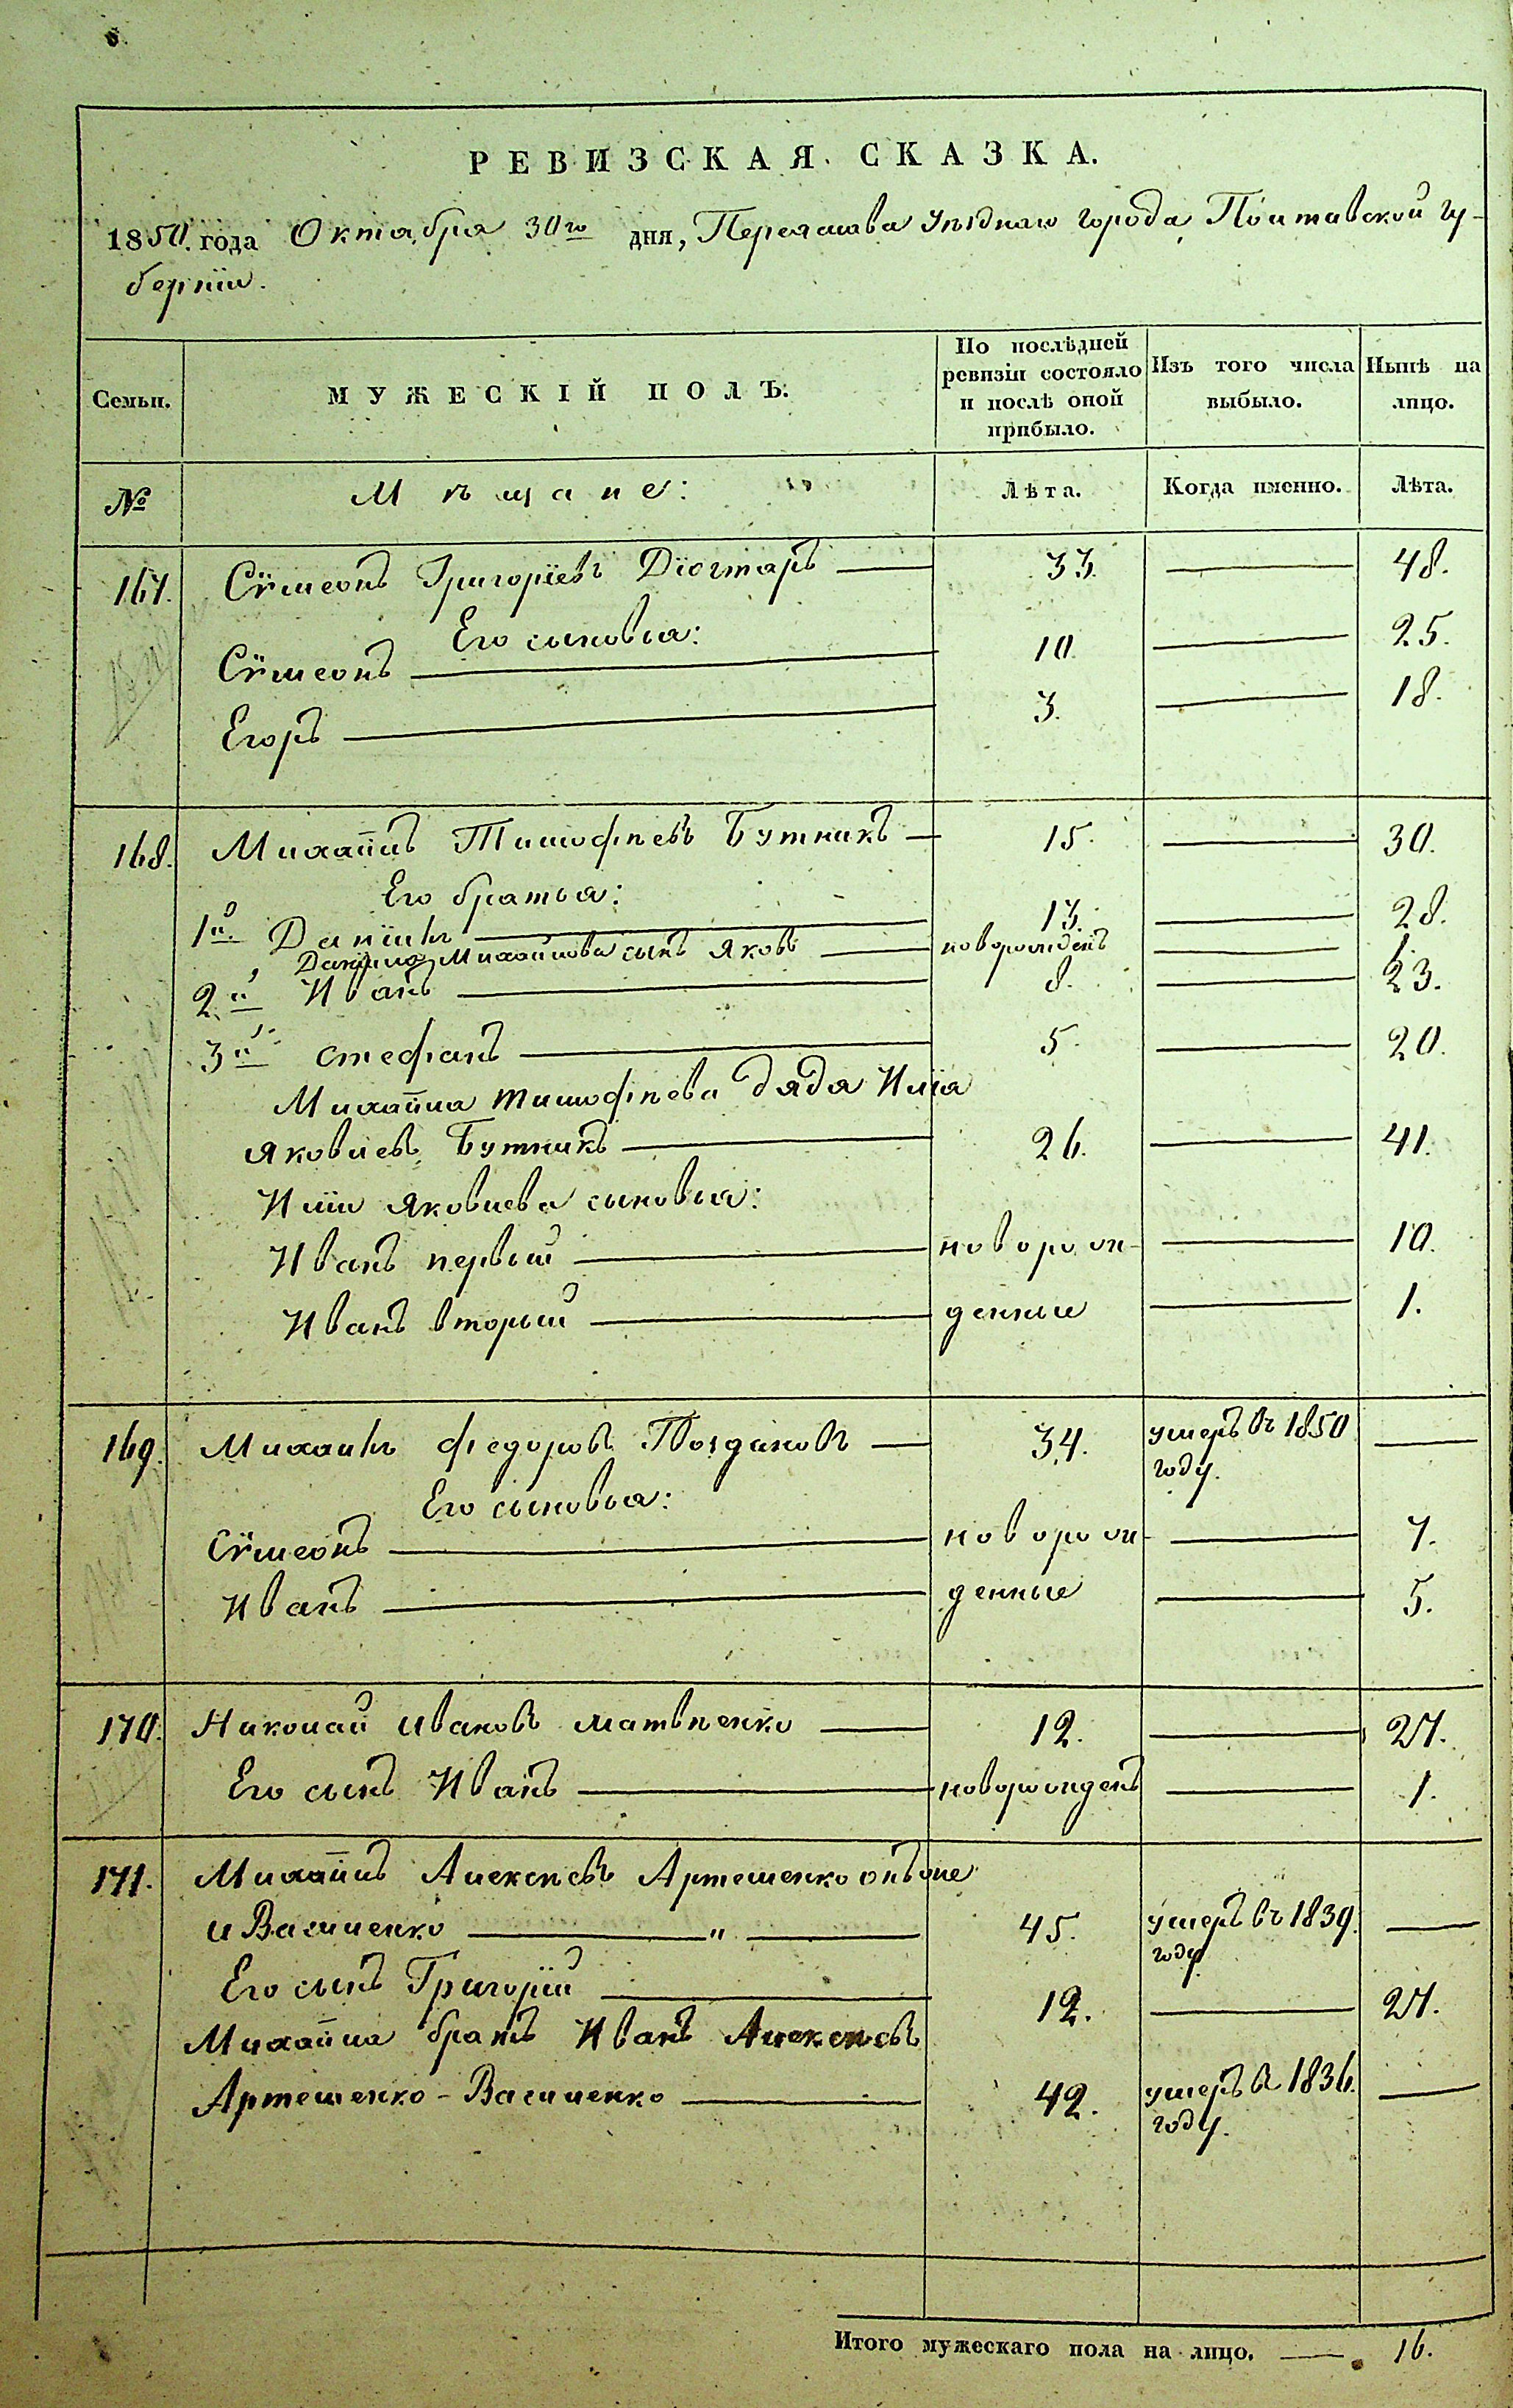 РЕВИЗСКАЯ СКАЗКА.
1850. года Октября 30го дня, Переяслава уѣзднаго города, Полтавской гу-
берніи.
Семьи. МУЖЕСКІЙ ПОЛЪ. По послѣдней ревизіи состояло и послѣ оной прибыло. Изъ того числа выбыло. Нынѣ на лицо.
№ Мѣщане: Лѣта. Когда именно. Лѣта.
167. Сѵмеонъ Григоріевъ — 33. — 48.
Его сыновья:
Сѵмеонъ — 10. — 25.
Егоръ — 3. — 18.
168. Михаилъ Тимофѣевъ Бутникъ — 15. — 30.
Его братья:
1й. Даніилъ — 13. — 28.
Данила Михайлова сынъ Яковъ — новорожденъ — 1.
2й Иванъ — 8. — 23.
3й Стефанъ — 5. — 20.
Михаила Тимофѣева дядя Илія
Яковлевъ Бутникъ — 26. — 41.
Иліи Яковлева сыновья:
Иванъ первый — новорож- — 10.
Иванъ вторый — денные — 1.
169. Михаилъ Федоровъ Гвоздиковъ — 34. умеръ въ 1850 году. —
Его сыновья:
Сѵмеонъ — новорож- — 7.
Иванъ — денные — 5.
170. Николай Ивановъ Матвѣенко — 12. — 27.
Его сынъ Иванъ — новорожденъ — 1.
171. Михаилъ Алексѣевъ Артеменко онъ же
и Василенко — " — 45. умеръ въ 1839. году —
Его сынъ Григорій — 12. — 27.
Михаила братъ Иванъ Алексѣевъ
Артеменко-Василенко — 42. умеръ въ 1836. году. —
Итого мужескаго пола на лицо. — 16.